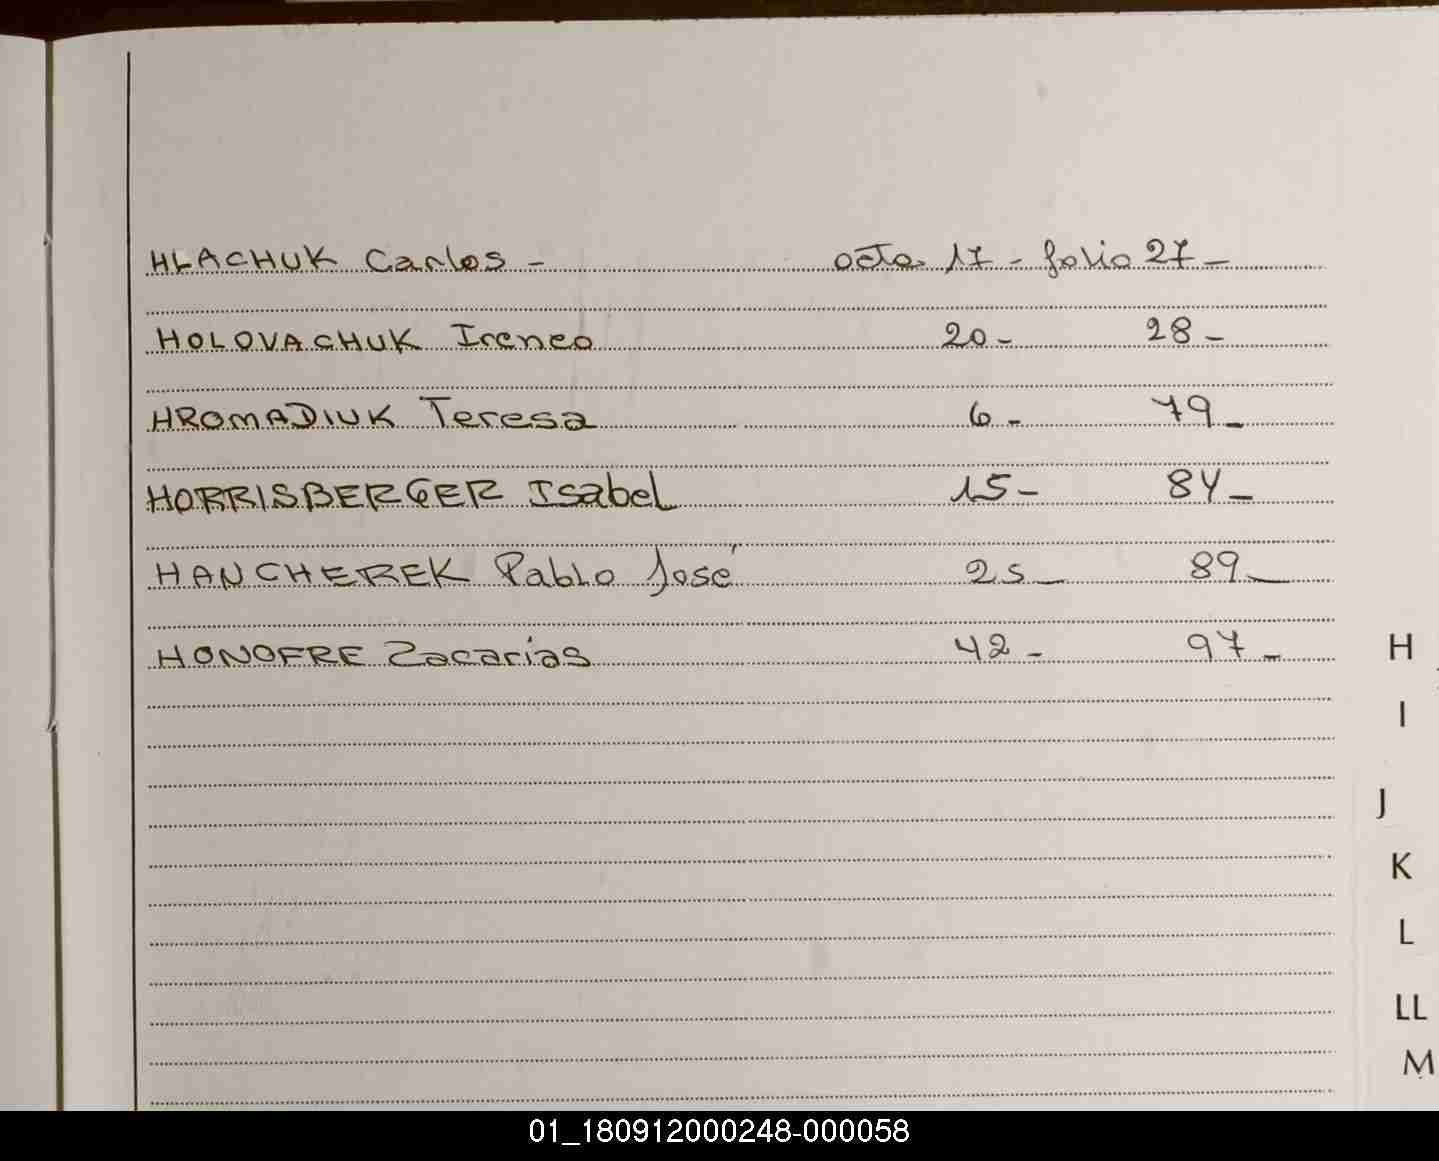 HLACHUK Carlos - acta 17 - folio 27 -
HOLOVACHUK Ireneo 20 - 28 -
HROMADIUK Teresa 6 - 79 -
HORRISBERGER Isabel 15 - 84 -
HANCHEREK Pablo José 25 - 89 -
HONOFRE Zacarias 42 - 97 -
H
I
J
K
L
LL
M
01_180912000248-000058